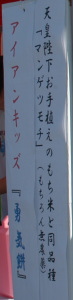 天皇陛下お手植えのもち米と同品種
「マンゲツモチ」(もちろん無農薬)
アイアンキッズ『勇気餅』